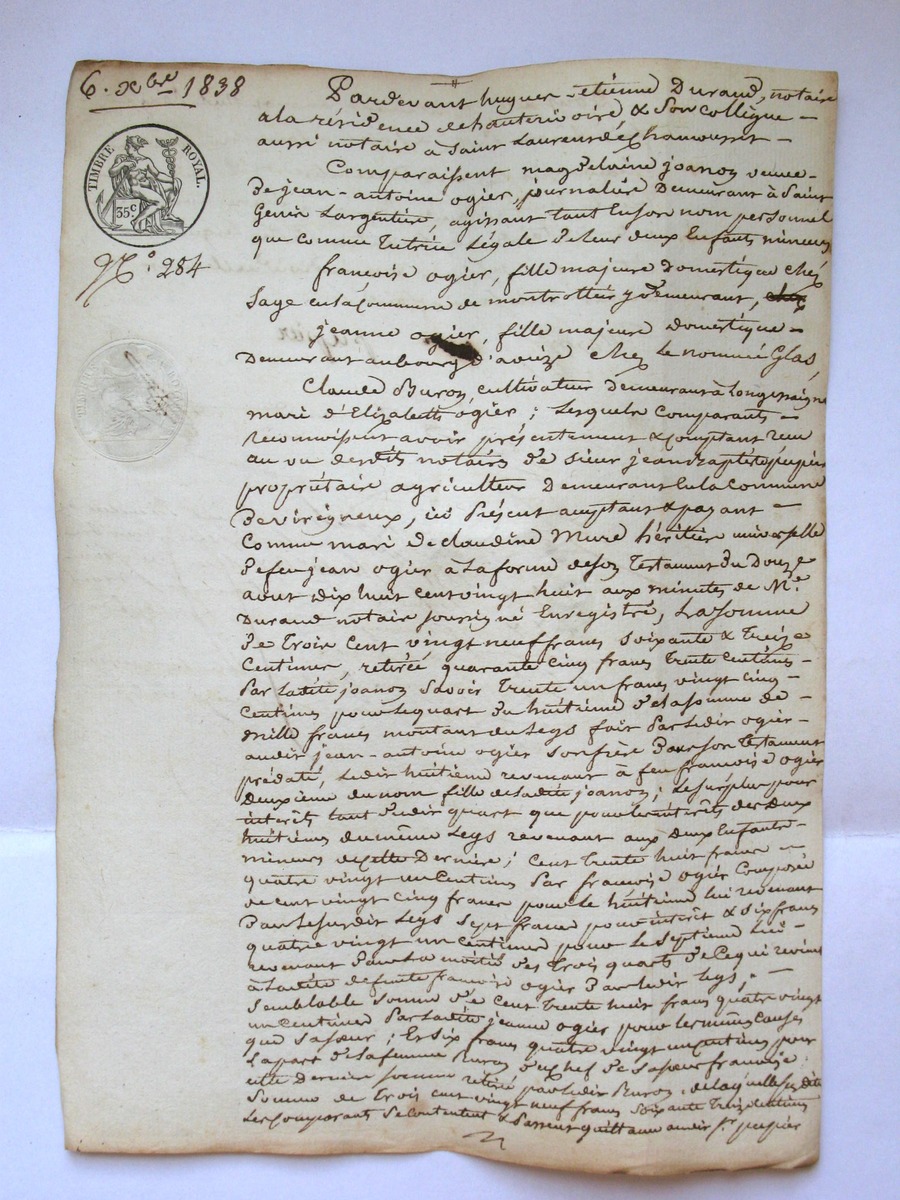 6. xbre 1838
TIMBRE ROYAL.
35c
N° 284
Pardevant hugues étienne Durand, notaire
a la résidence de hauterivoire, & Son Collègue
aussi notaire à Saint Laurent de Chamousset
Comparaissent magdelaine joanon veuve
de jean-antoine ogier, journalière Demeurant à Saint
Genis Largentière, agissant tant En son nom personnel
que Comme Tutrice Légale de leurs deux Enfants mineurs
francoise ogier, fille majeure domestique chez
Sage en la Commune de montrottier y demeurant,
jeanne ogier, fille majeure domestique
Demeurant au bourg d'aveize chez le nommé Glas,
Claude Buron, cultivateur demeurant à Longessaigne
mari d'Elizabeth ogier ; Lesquels Comparants
reconnoissent avoir présentement & comptant recu
au vu desdits notaires de sieur jean Baptiste pupier
propriétaire agriculteur Demeurant En la Commune
de virigneux, ici Présent acceptant & payant
Comme mari de claudine Mure héritière universelle
de feu jean ogier à La forme de son Testament du Douze
aout dix huit cent vingt huit aux minutes de Me
Durand notaire soussigné Enregistré, La Somme
de Trois Cent vingt neuf francs soixante & Treize
Centimes, retirée quarante Cinq francs Trente Centimes
Par Ladite joanon Savoir Trente un francs vingt cinq
Centimes pour Le quart du huitième de la somme de
mille francs montant du Legs fait Par Ledit ogier
audit jean-antoine ogier son frère Par son Testament
prédaté, Ledit huitième revenant à feu francoise ogier
deuxième du nom fille de Ladite joanon ; Le surplus pour
interêts tant dudit quart que pour les intérêts des deux
huitièmes du même Legs revenant aux deux Enfants
mineurs de cette Dernière ; Cent Trente huit francs
quatre vingt un Centimes Par francoise ogier Composée
de cent vingt cinq francs pour Le huitième lui revenant
Dans Le susdit Legs Sept francs pour intérêt & six francs
quatre vingt un centimes pour Le Septième lui
revenant dans La moitié des Trois quarts de ce qui revient
à Ladite defunte francoise ogier Par Ledit Legs ;
Semblable Somme de Cent Trente huit francs quatre vingt
un Centimes Par Ladite jeanne ogier pour les mêmes Causes
que Sa soeur ; Et Six francs quatre vingt un Centimes pour
La part de La femme Buron du chef de Sa soeur francoise
cette Dernière somme retirée par Ledit Buron, de laquelle susdite
Somme de Trois Cent vingt neuf francs soixante Treize Centimes
Les Comparants Se Contentent & Passent quittance audit Sr pupier